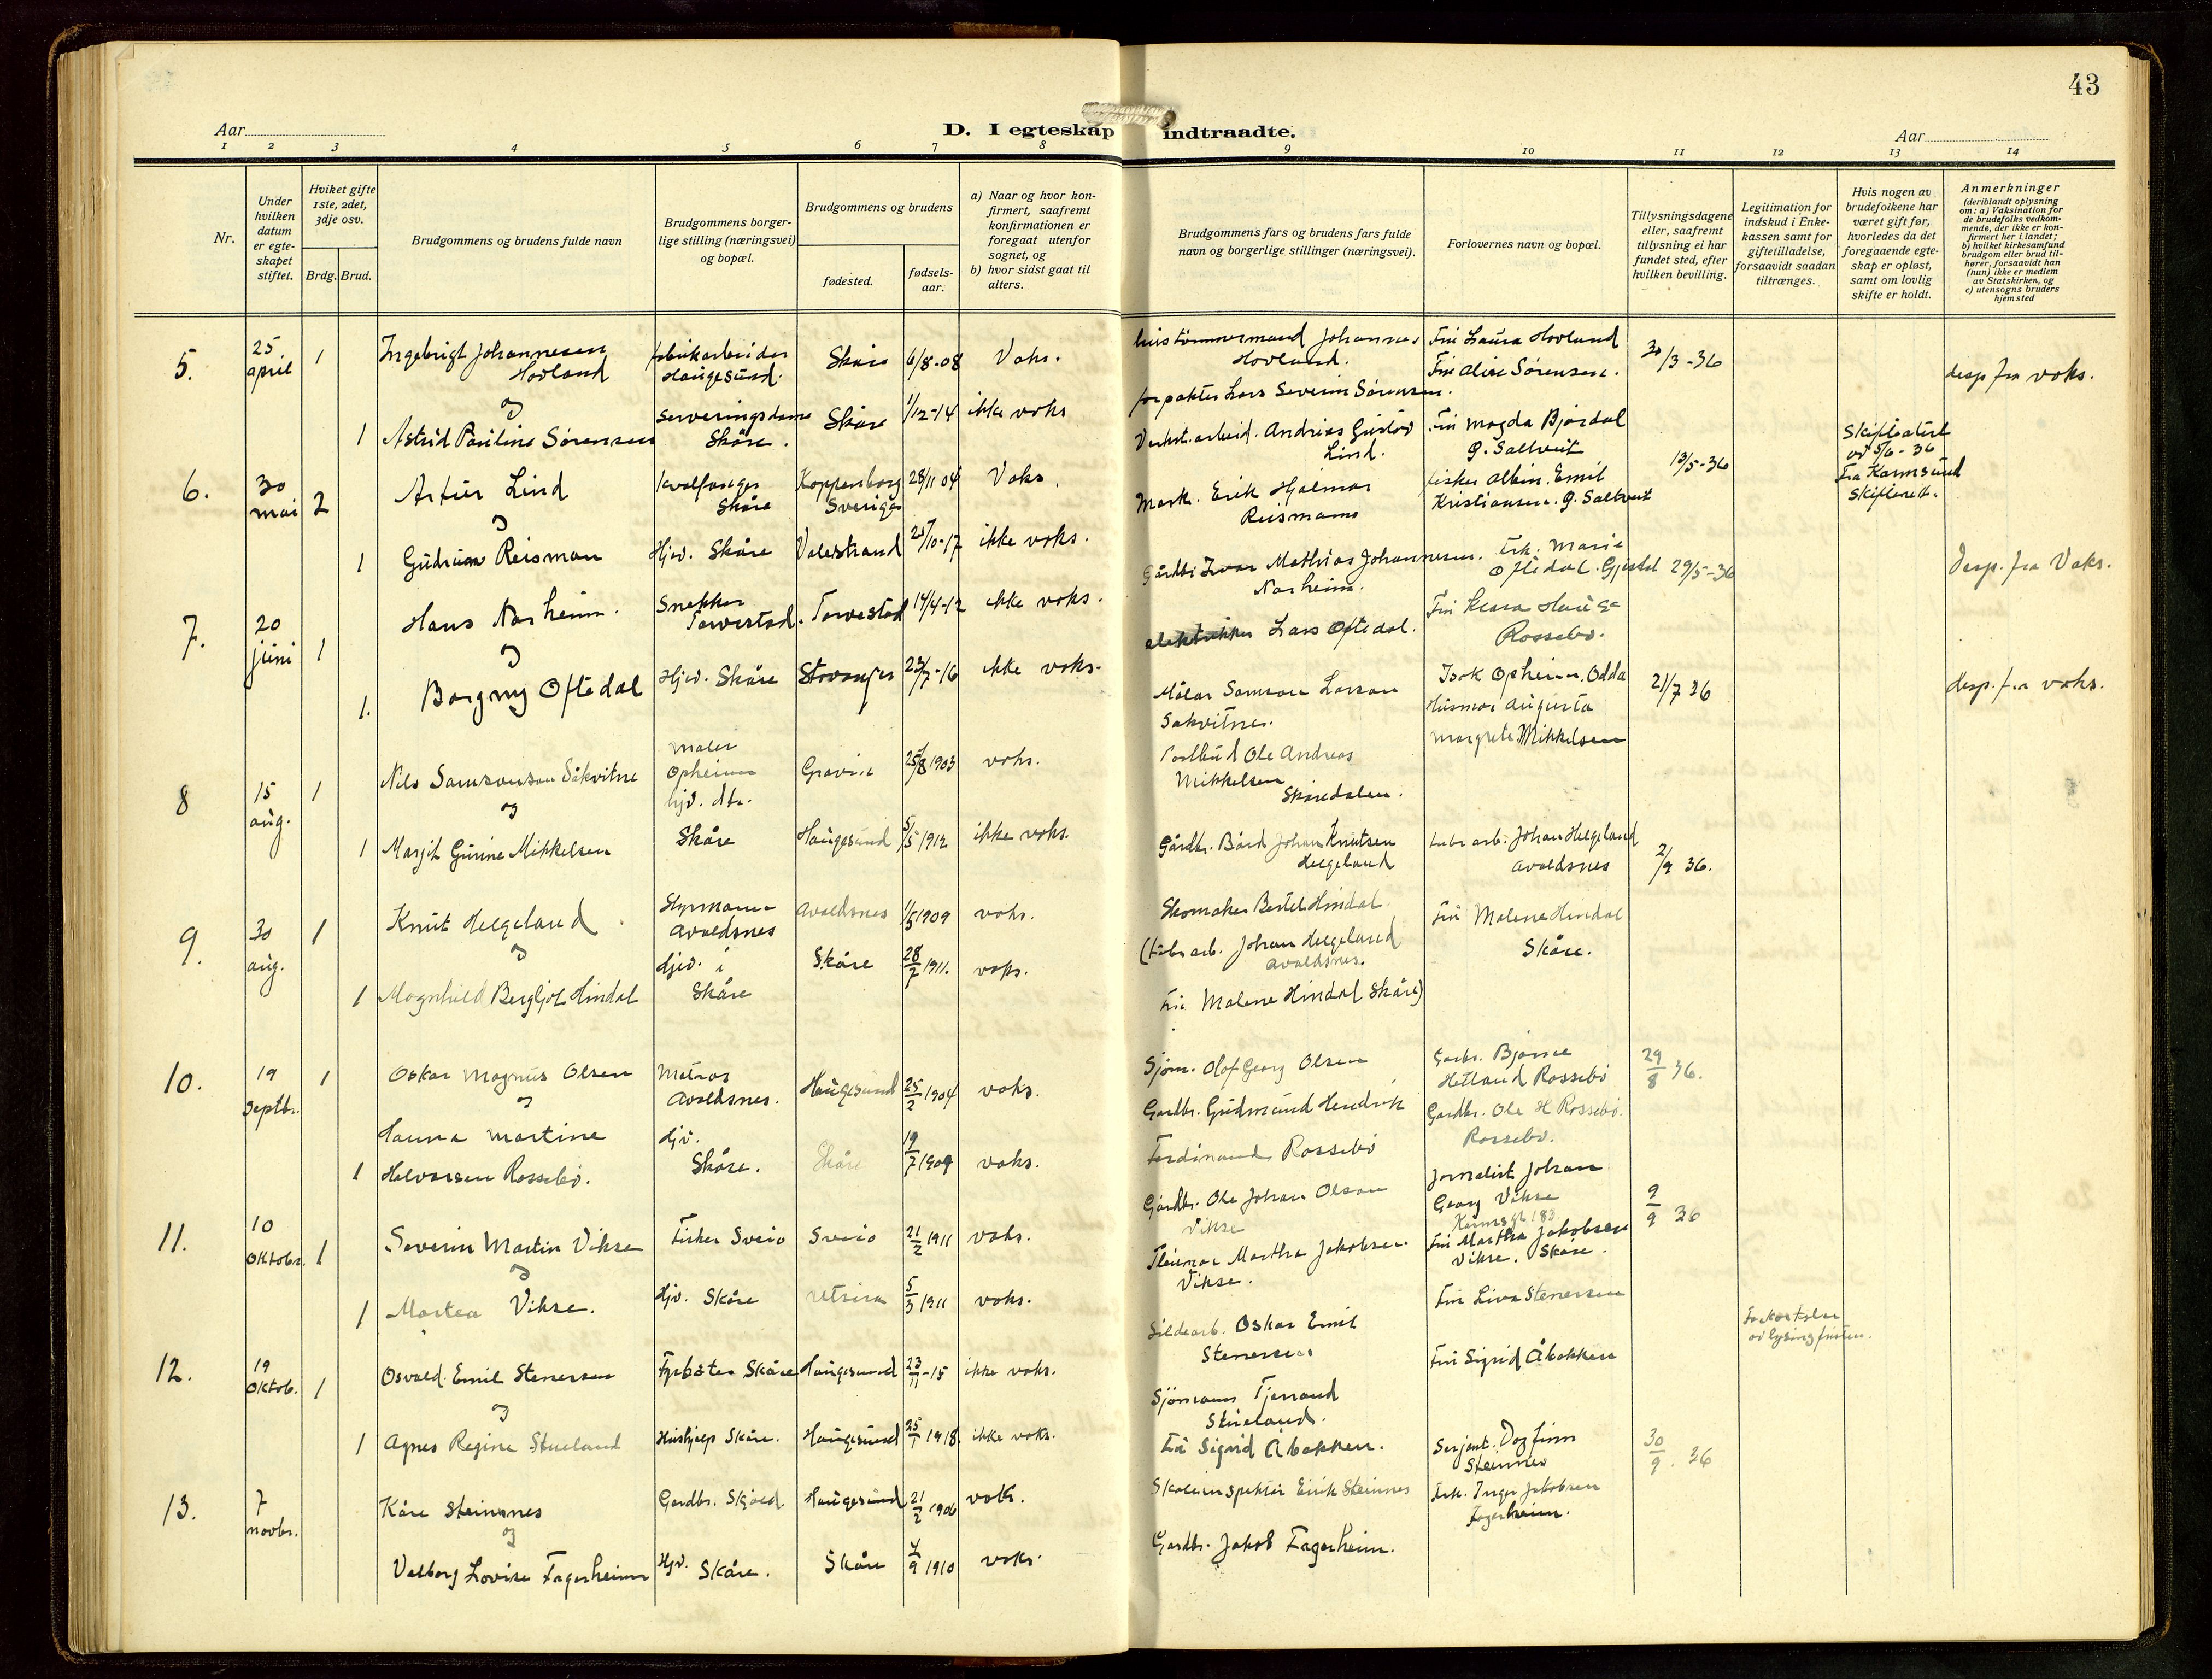 43
Aar
D. I egteskap indtraadte.
Aar
1 2 3 4 5 6 7 8 9 10 11 12 13 14
Nr.
Under hvilken datum er egte-skapet stiftet.
Hviket gifte 1ste, 2det, 3dje osv.
Brdg. Brud.
Brudgommens og brudens fulde navn
Brudgommens borger-lige stilling (næringsvei) og bopæl.
Brudgommens og brudens
fødested.
fødsels-aar.
a) Naar og hvor kon-firmert, saafremt konfirmationen er foregaat utenfor sognet, og
b) hvor sidst gaat til alters.
Brudgommens fars og brudens fars fulde navn og borgerlige stillinger (næringsvei).
Forlovernes navn og bopæl.
Tillysningsdagene eller, saafremt tillysning ei har fundet sted, efter hvilken bevilling.
Legitimation for indskud i Enke-kassen samt for giftetilladelse, forsaavidt saadan tiltrænges.
Hvis nogen av brudefolkene har været gift før, hvorledes da det foregaaende egte-skap er opløst, samt om lovlig skifte er holdt.
Anmerkninger (deriblandt oplysning om: a) Vaksination for de brudefolks vedkom-mende, der ikke er kon-firmert her i landet; b) hvilket kirkesamfund brudgom eller brud til-hører, forsaavidt han (hun) ikke er medlem av Statskirken, og c) utensogns bruders hjemsted
5. 25 april 1 Ingebrigt Johannesen Hovland fabrikarbeider Haugesund. Skåre 6/8-08 Vaks. hustømmermand Johannes Hovland. Fru Laura Hovland 30/3-36 desp. fra voks.
og
1 Astrid Pauline Sørensen Serveringsdame Skåre. Skåre 1/12-14 ikke voks forpakter Lars Severin Sørensen. Fru Alise Sørensen.
6. 30 mai 2 Artur Lind kvalfanger Skåre Koppenborg Sverige 28/11 04 Vaks. Verkst. arbeid. Andrias Gustav Lind. Fru Magda Bjørdal G. Saltveit 13/5-36 Skifteattest av 5/6-36 Fra Karmsund Skifterett.
og
1 Gudrun Reisman Hjv. Skåre Valestrand 25/10-17 ikke voks. Mask. Erik Hjalmar Reismann fisker Albin Emil Kristiansen. G. Saltveit
7. 20 juni 1 Hans Norheim. Snekker Torvestad. Torvestad 14/4-12 ikke voks. Gårdbr. Ivar Mathias Johannesen Norheim. Frk. Marie Oftedal. Gjestal 29/5-36 Desp. fra Vaks.
og
1. Borgny Oftedal Hjv. Skåre Stavanger 23/7-16 ikke voks. elektrikker Lars Oftedal. Fru Klara Hauge Rossebø.
8 15 aug. 1 Nils Samsonson Såkvitne maler Opheim Gravin 25/8 1903 voks. Målar Samson Larson Sakvitne. Isak Opheim, Odda 21/7 36 desp. fra voks.
og
1 Margit Gurine Mikkelsen hjv. dtr. Skåre Haugesund 5/5 1912 ikke voks. Postbud Ole Andreas Mikkelsen Skåredalen. Husmor Augusta Margrete Mikkelsen
9. 30 aug. 1 Knut Helgeland Styrmann Avaldsnes Avaldsnes 1/5 1909 voks. Gårdbr. Bård Johan Knutsen Helgeland fabr arb. Johan Helgeland Avaldsnes 2/9 36.
og
1 Magnhild Bergljot Hindal Hjv. i Skåre Skåre 28/7 1911. voks. Skomaker Bertel Hindal. Fru Malene Hindal Skåre.
(fabr arb. Johan Helgeland Avaldsnes.
Fru Malene Hindal Skåre)
10. 19 Septbr. 1 Oskar Magnus Olsen Matros Avaldsnes. Haugesund 25/2 1904 voks. Sjøm. Olaf Georg Olsen Gardbr. Bjarne Hetland Rossebø 29/8 36.
og
1 Hanna Martine Halvorsen Rossebø. Hjv. Skåre. Skåre 19/7 1909 voks. Gardbr. Gudmund Hendrik Ferdinand Rossebø Gardbr. Ole H Rossebø. Rossebø.
11. 10 Oktobr. 1 Severin Martin Vikse Fisker Sveio Sveio 21/2 1911 voks. Gårdbr. Ole Johan Olson Vikse Jornalist Johan Georg Vikse Karmsgt 183 9/9 36
og
1 Martea Vikse. Hjv. Skåre Utsira 5/3 1911 voks. Martha Jakobsen Vikse. Fru Martha Jakobsen Vikse. Skåre.
12. 19 Oktob. 1 Osvald Emil Stenersen Fyrbøter Skåre Haugesund 23/11-15 ikke voks. Sildearb. Oskar Emil Stenersen Fru Liva Stenersen Forkortelse av lysingsfristen.
og
1 Agnes Regine Stueland Hushjelp Skåre. Haugesund 25/1 1918. ikke voks. Sjømann Tjerand Stueland. Fru Sigrid Åbakken
Fru Sigrid Åbakken.
13. 7 novbr. Kåre Steinsnes Gardbr. Skjold Haugesund 21/2 1906 voks. Skoleinspektør Eirik Steinnes Serjant. Dagfinn Steinnes 30/9. 36
og
Valborg Lovise Fagerheim Hjv. Skåre. Skåre 4/9 1910 voks. Gardbr. Jakob Fagerheim. Frk. Inger Jakobsen Fagerheim.